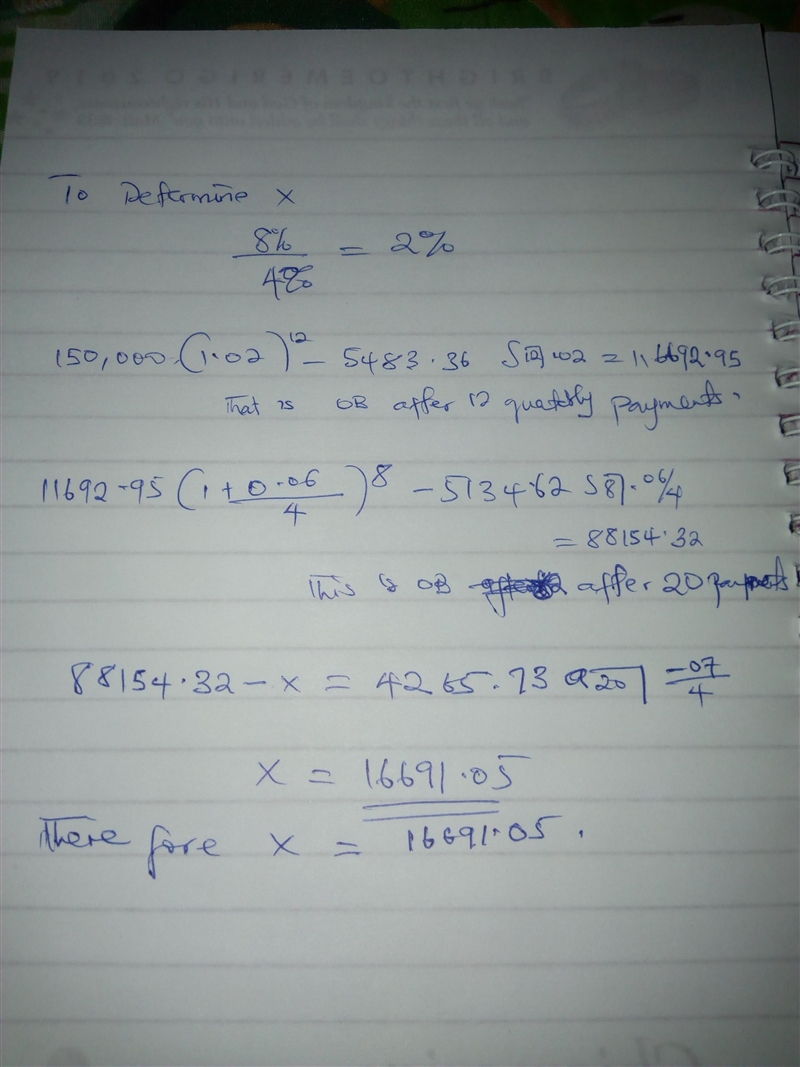 To Determine x
8% / 4% = 2%
150,000 (1.02)^12 - 5483.36 S12|.02 = 116692.95
That is OB after 12 quaterly payments.
11692.95 (1 + 0.06/4)^8 - 5134.62 S8|.06/4
= 88154.32
This is OB after 20 payments
88154.32 - x = 4265.73 a20| .07/4
x = 16691.05
There fore x = 16691.05.